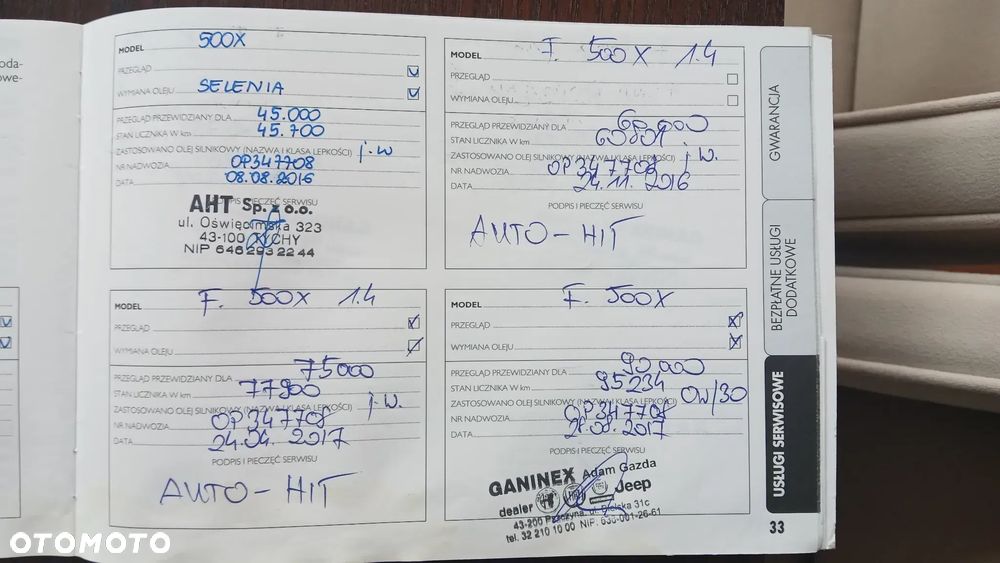 oda-
owe-
MODEL 500X
PRZEGLĄD
WYMIANA OLEJU SELENIA
PRZEGLĄD PRZEWIDZIANY DLA 45.000
STAN LICZNIKA W km 45.700
ZASTOSOWANO OLEJ SILNIKOWY (NAZWA I KLASA LEPKOŚCI) j.w
NR NADWOZIA OP347708
DATA 08.08.2016
PODPIS I PIECZĘĆ SERWISU
AHT Sp. z o.o.
ul. Oświęcimska 323
43-100 TYCHY
NIP 646 293 22 44
MODEL F. 500X 1.4
PRZEGLĄD
WYMIANA OLEJU
PRZEGLĄD PRZEWIDZIANY DLA 60.000
STAN LICZNIKA W km 60801
ZASTOSOWANO OLEJ SILNIKOWY (NAZWA I KLASA LEPKOŚCI) j.w.
NR NADWOZIA OP347708
DATA 24.11.2016
PODPIS I PIECZĘĆ SERWISU
AUTO-HIT
MODEL F. 500X 1.4
PRZEGLĄD
WYMIANA OLEJU
PRZEGLĄD PRZEWIDZIANY DLA 75000
STAN LICZNIKA W km 77900
ZASTOSOWANO OLEJ SILNIKOWY (NAZWA I KLASA LEPKOŚCI) j.w.
NR NADWOZIA OP347708
DATA 24.04.2017
PODPIS I PIECZĘĆ SERWISU
AUTO-HIT
MODEL F. 500X
PRZEGLĄD
WYMIANA OLEJU
PRZEGLĄD PRZEWIDZIANY DLA 90.000
STAN LICZNIKA W km 95234
ZASTOSOWANO OLEJ SILNIKOWY (NAZWA I KLASA LEPKOŚCI) 0W/30
NR NADWOZIA OP347708
DATA 28.08.2017
PODPIS I PIECZĘĆ SERWISU
GANINEX Adam Gazda
dealer Jeep
43-200 Pszczyna, ul. Bielska 31c
tel. 32 210 10 00 NIP: 638-001-26-61
GWARANCJA
BEZPŁATNE USŁUGI
DODATKOWE
USŁUGI SERWISOWE
33
OTOMOTO